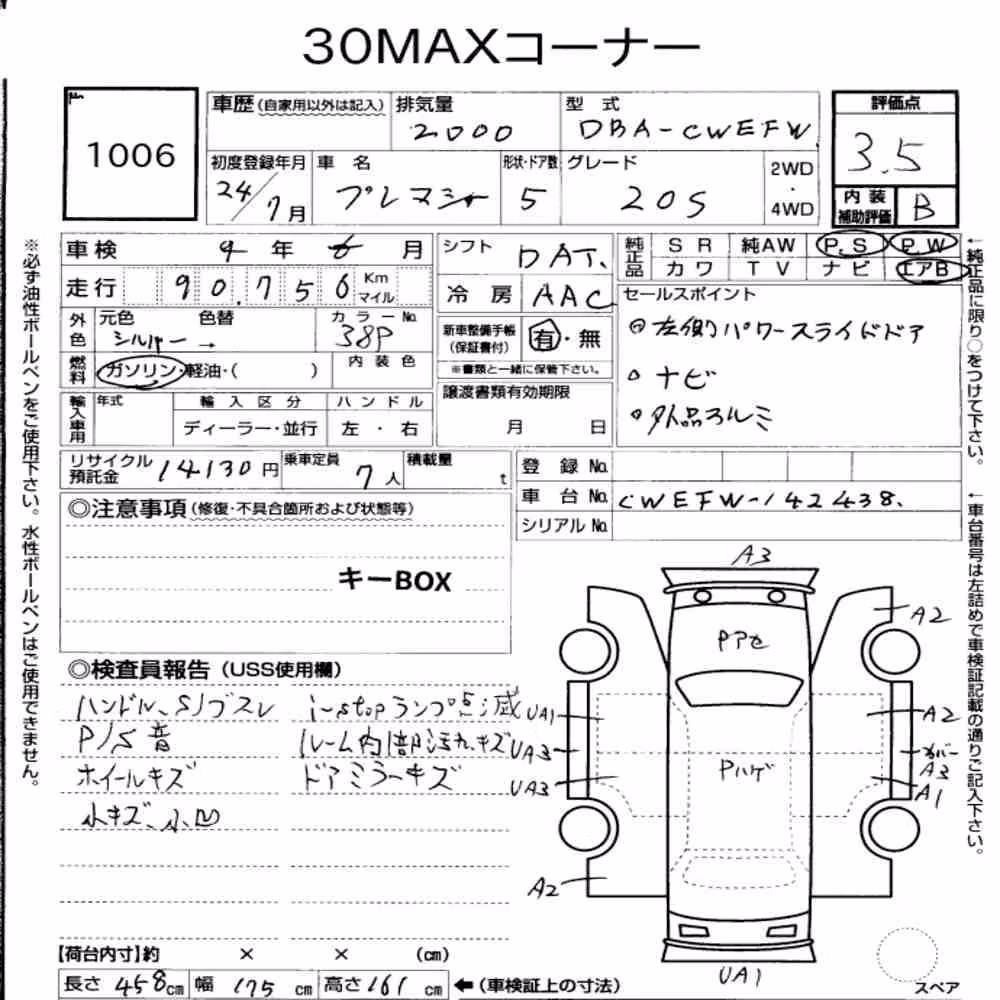 30MAXコーナー
1006
車歴 (自家用以外は記入) 排気量 2000 型式 DBA-CWEFW
評価点 3.5
初度登録年月 24/7月 車名 プレマシー 形状・ドア数 5 グレード 20S 2WD・4WD
内装補助評価 B
※必ず油性ボールペンをご使用下さい。水性ボールペンはご使用できません。
車検 4年6月 シフト DAT. 純正品 SR 純AW P.S P.W
カワ TV ナビ エアB
走行 90,756 Km マイル 冷房 AAC
←純正品に限り○をつけて下さい。
外色 元色 シルバー → 色替 カラーNo. 38P
新車整備手帳(保証書付) 有・無
※書類と一緒に保管下さい。
燃料 ガソリン・軽油・( ) 内装色
セールスポイント
左側パワースライドドア
ナビ
外品アルミ
輸入車用 年式 輸入区分 ディーラー・並行 ハンドル 左・右
譲渡書類有効期限 月 日
リサイクル預託金 14130円 乗車定員 7人 積載量 t
登録No.
車台No. CWEFW-142438.
シリアルNo.
←車台番号は左詰めで車検証記載の通りご記入下さい。
◎注意事項 (修復・不具合箇所および状態等)
キーBOX
◎検査員報告 (USS使用欄)
ハンドル、S/ノブスレ
P/S音
ホイールキズ
小キズ、小凹
i-stopランプ点滅
ルーム内部汚れキズ
ドアミラーキズ
A3
A2
Pアセ
UA1
A2
UA3
カバー
A3
Pハゲ
UA3
A1
A2
UA1
スペア
【荷台内寸】約 × × (cm)
長さ 458cm 幅 175cm 高さ 161cm ←(車検証上の寸法)